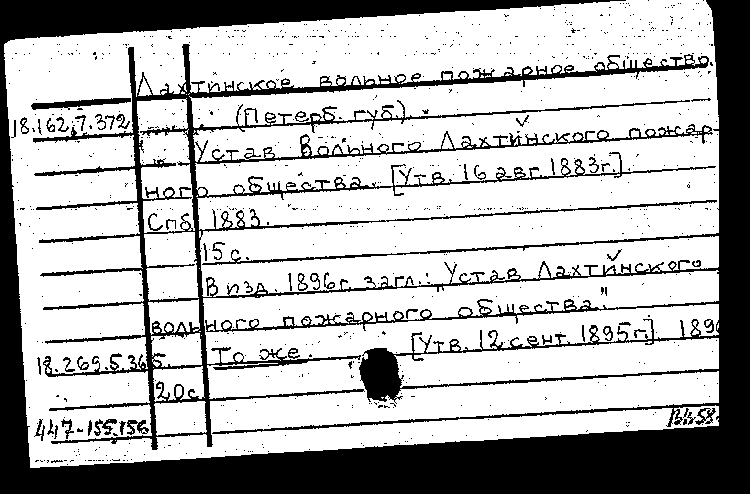 Лахтинское вольное пожарное общество.
18.162.7.372 (Петерб. губ.).
Устав Вольного Лахтинского пожар-
ного общества. [Утв. 16 авг. 1883г.].
Спб, 1883.
15 с.
В изд. 1896г. загл.: "Устав Лахтинского
вольного пожарного общества."
18.269.5.365. То же. [Утв. 12 сент. 1895г.]. 1896
20с.
447-155,156